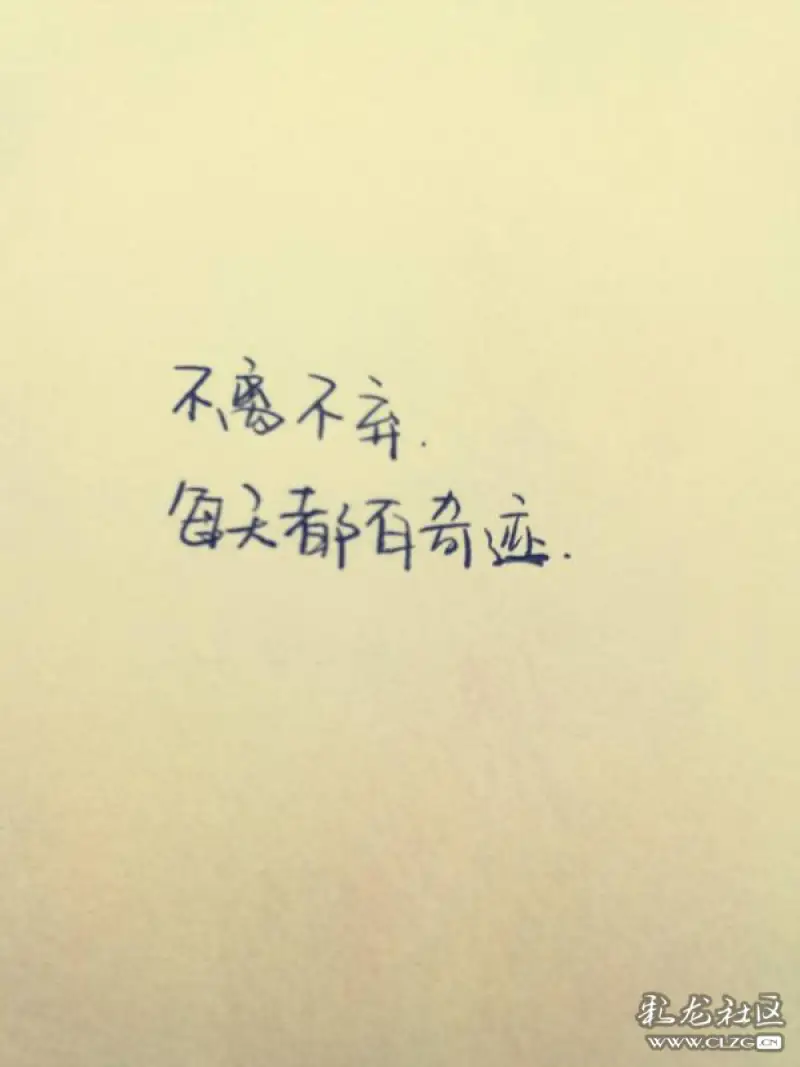 不离不弃.
每天都有奇迹.
彩龙社区
WWW.CLZG.CN